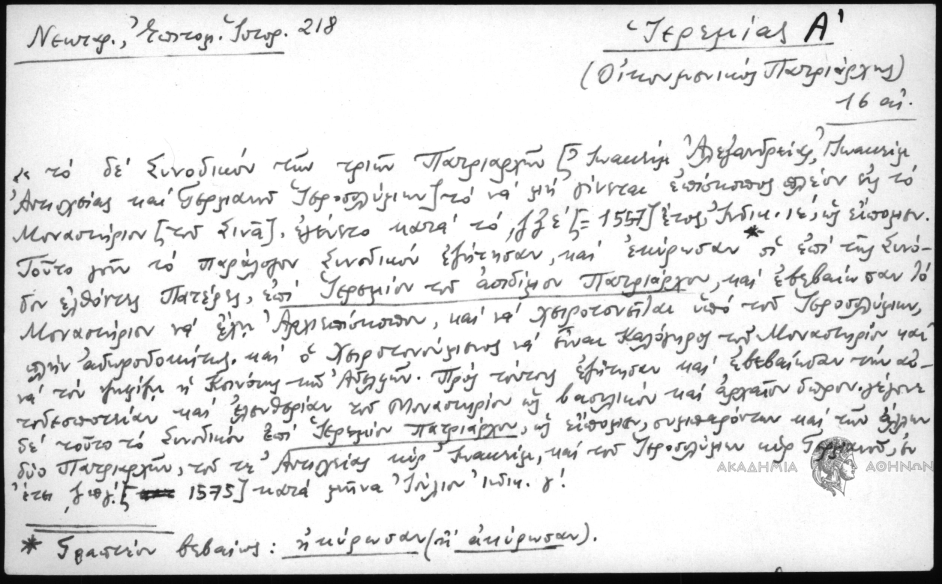 Νεκταρ., Ἐπιτομ. Ἱστορ. 218
Ἱερεμίας Α'
(Οἰκουμενικός Πατριάρχης)
16 αἰ.
« τό δέ Συνοδικόν τῶν τριῶν Πατριαρχῶν [Ἰωακείμ Ἀλεξανδρείας, Ἰωακείμ
Ἀντιοχείας καί Γερμανοῦ Ἱεροσολύμων] τό νά μή γίνεται ἐπίσκοπος πλέον εἰς τό
Μοναστήριον [τοῦ Σινᾶ], ἐγένετο κατά τό ,ζξε' [= 1557] ἔτος, Ἰνδικ. ιέ, ὡς εἴπομεν.
Τοῦτο γοῦν τό παράλογον Συνοδικόν ἐξήτησαν, καί ἐκύρωσαν* οἱ ἐπί τῆς Συνό-
δου ἐλθόντες Πατέρες, ἐπί Ἱερεμίου τοῦ ἀοιδίμου Πατριάρχου, καί ἐβεβαίωσαν τό
Μοναστήριον νά ἔχῃ Ἀρχιεπίσκοπον, καί νά χειροτονῆται ὑπό τοῦ Ἱεροσολύμων,
πλήν ἀδωροδοκήτως. καί ὁ χειροτονούμενος νά εἶναι Καλόγηρος τοῦ Μοναστηρίου καί
νά τόν ψηφίζῃ ἡ Κοινότης τῶν Ἀδελφῶν. Πρός τούτοις ἐξήτησαν καί ἐβεβαίωσαν τήν αὐ-
τοδεσποτείαν καί ἐλευθερίαν τοῦ Μοναστηρίου ὡς βασιλικόν καί ἀρχαῖον δῶρον. γέγονε
δέ τοῦτο τό Συνοδικόν ἐπί Ἱερεμίου πατριάρχου, ὡς εἴπομεν, συμπαρόντων καί τῶν ἄλλων
δύο Πατριαρχῶν, τοῦ τε Ἀντιοχείας κύρ Ἰωακείμ, καί τοῦ Ἱεροσολύμων κύρ Γερμανοῦ, ἐν
ἔτει ,ζπγ' [1575] κατά μῆνα Ἰούλιον Ἰνδικ. γ'!
ΑΚΑΔΗΜΙΑ ΑΘΗΝΩΝ
* Γραπτέον βεβαίως: ἠκύρωσαν (ἤ ἀκύρωσαν).